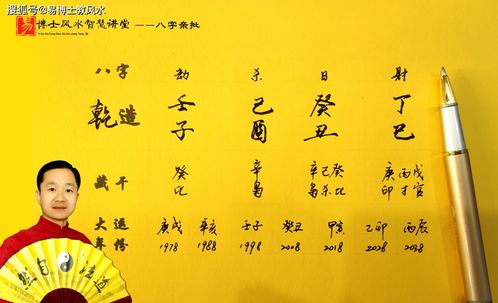 搜狐号@易博士教风水
易 博士风水智慧讲堂 ——八字亲批
Yi Bo Shi Feng Shui Zhi Hui Jiang Tang
八字 劫 杀 日 财
乾造 壬子 己酉 癸丑 丁巳
藏干 癸 辛 辛己癸 庚丙戊
比 枭 枭杀比 印才官
大运 庚戌 辛亥 壬子 癸丑 甲寅 乙卯 丙辰
年份 1978 1988 1998 2008 2018 2028 2038
道